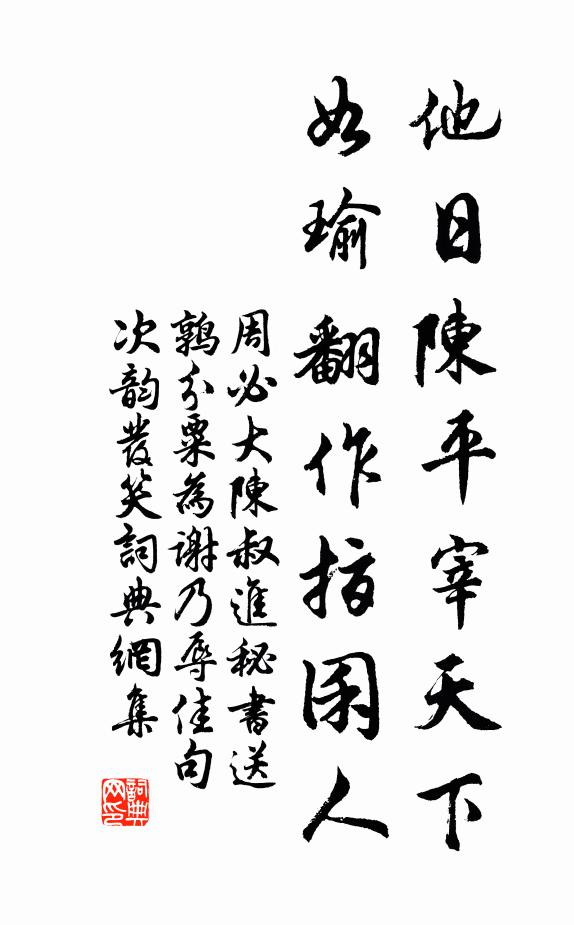 他日陳平宰天下
如瑜翻作指囷人
周必大陳叔進秘書送
鶉分粟為謝乃辱佳句
次韵發笑詞典網集
詞典网印